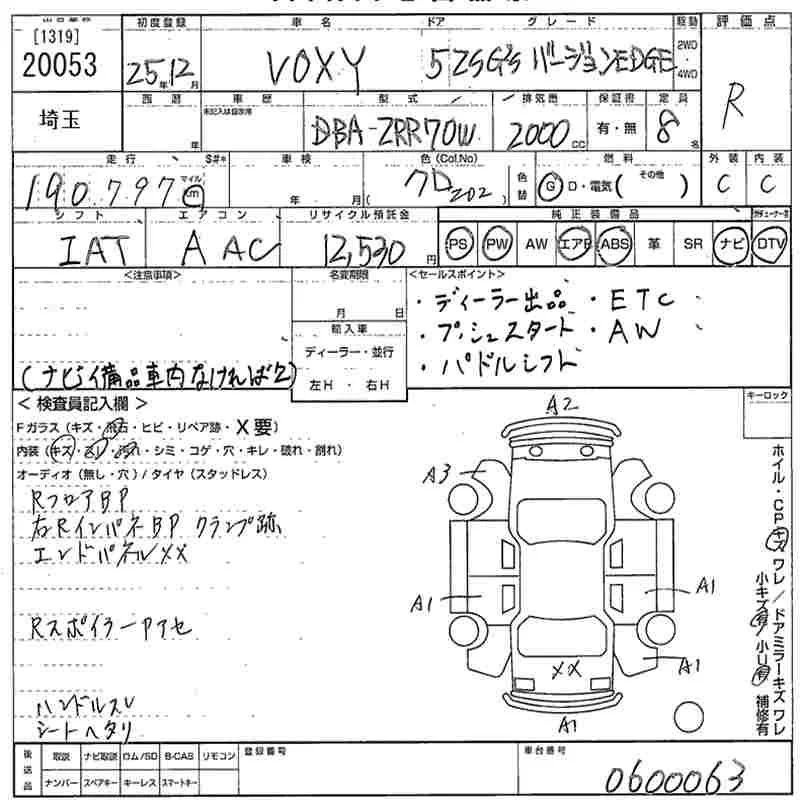 [1319]
20053
初度登録 車名 ドア グレード 駆動 評価点
25年12月 VOXY 5 ZSG's バージョンEDGE 2WD・4WD R
埼玉
西暦 車歴 型式 排気量 保証書 定員
年 未記入は自家用 DBA-ZRR70W 2000cc 有・無 8名
走行 S#* 車検 色(Col.No) 色替 燃料 外装 内装
190,797 マイル km 年 月 クロ202 G D・電気( その他 ) C C
シフト エアコン リサイクル預託金 純正装備品
IAT AAC 12,530円 PS PW AW エアB ABS 革 SR ナビ DTV
<注意事項> 名変期限 <セールスポイント>
月 日
・ディーラー出品 ・ETC
・プッシュスタート ・AW
・パドルシフト
輸入車
ディーラー・並行
左H・右H
(ナビイ備品車内なければ乞)
<検査員記入欄> キーロック
Fガラス(キズ・飛石・ヒビ・リペア跡・X要)
内装(キズ・スレ・汚れ・シミ・コゲ・穴・キレ・破れ・割れ)
オーディオ(無し・穴)/タイヤ(スタッドレス)
RフロアBP
右RインパネBP クランプ跡
エンドパネルXX
Rスポイラー Pアセ
ハンドルスレ
シートヘタリ
A2
A3
A1
A1
XX
A1
A1
ホイル・CPキズワレ/ドアミラーキズワレ
小キズ有/小U有 補修有
後送品 取説 ナビ取説 ロム/SD B-CAS リモコン 登録番号 車台番号
ナンバー スペアキー キーレス スマートキー 0600063